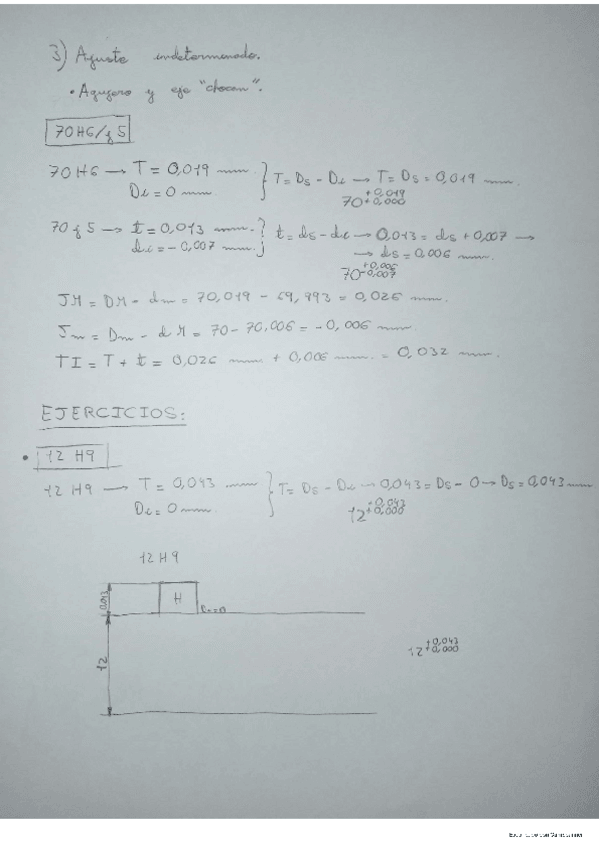 3) Ajuste indeterminado.
• Agujero y eje "chocan".
70H6/j5
70H6 → T = 0,019 mm
Di = 0 mm
T = Ds - Di → T = Ds = 0,019 mm.
70 +0,019 +0,000
70 j5 → t = 0,013 mm.
di = -0,007 mm.
t = ds - di → 0,013 = ds + 0,007 →
→ ds = 0,006 mm.
70 +0,006 -0,007
JM = DM - dm = 70,019 - 69,993 = 0,026 mm.
Jm = Dm - dM = 70 - 70,006 = -0,006 mm.
TI = T + t = 0,026 mm + 0,006 mm. = 0,032 mm.
EJERCICIOS:
• 12 H9
12 H9 → T = 0,043 mm
Di = 0 mm.
T = Ds - Di → 0,043 = Ds - 0 → Ds = 0,043 mm
12 +0,043 +0,000
12 H9
0,043
H
Di=0
12
12 +0,043 +0,000